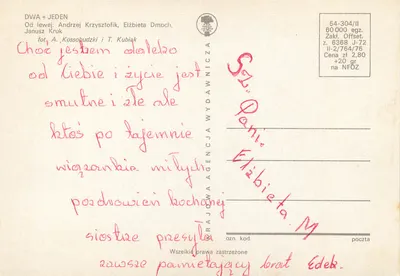 DWA + JEDEN
Od lewej: Andrzej Krzysztofik, Elżbieta Dmoch,
Janusz Kruk
fot. A. Kossobudzki / T. Kubiak
Choć jestem daleko
od Ciebie i życie jest
smutne i złe ale
ktoś po tajemnie
wiązankia miłych
pozdrowień kochanej
siostrze przesyła
zawsze pamietający brat Edek.
KRAJOWA AGENCJA WYDAWNICZA
64-304/II
60 000 egz.
Zakł. Offset.
z. 6368 J-72
II-2/764/76
Cena zł 2,80
+20 gr
na NFOZ
Sz. Pani.
Elżbieta. M
ozn kod
poczta
Wszelkie prawa zastrzeżone